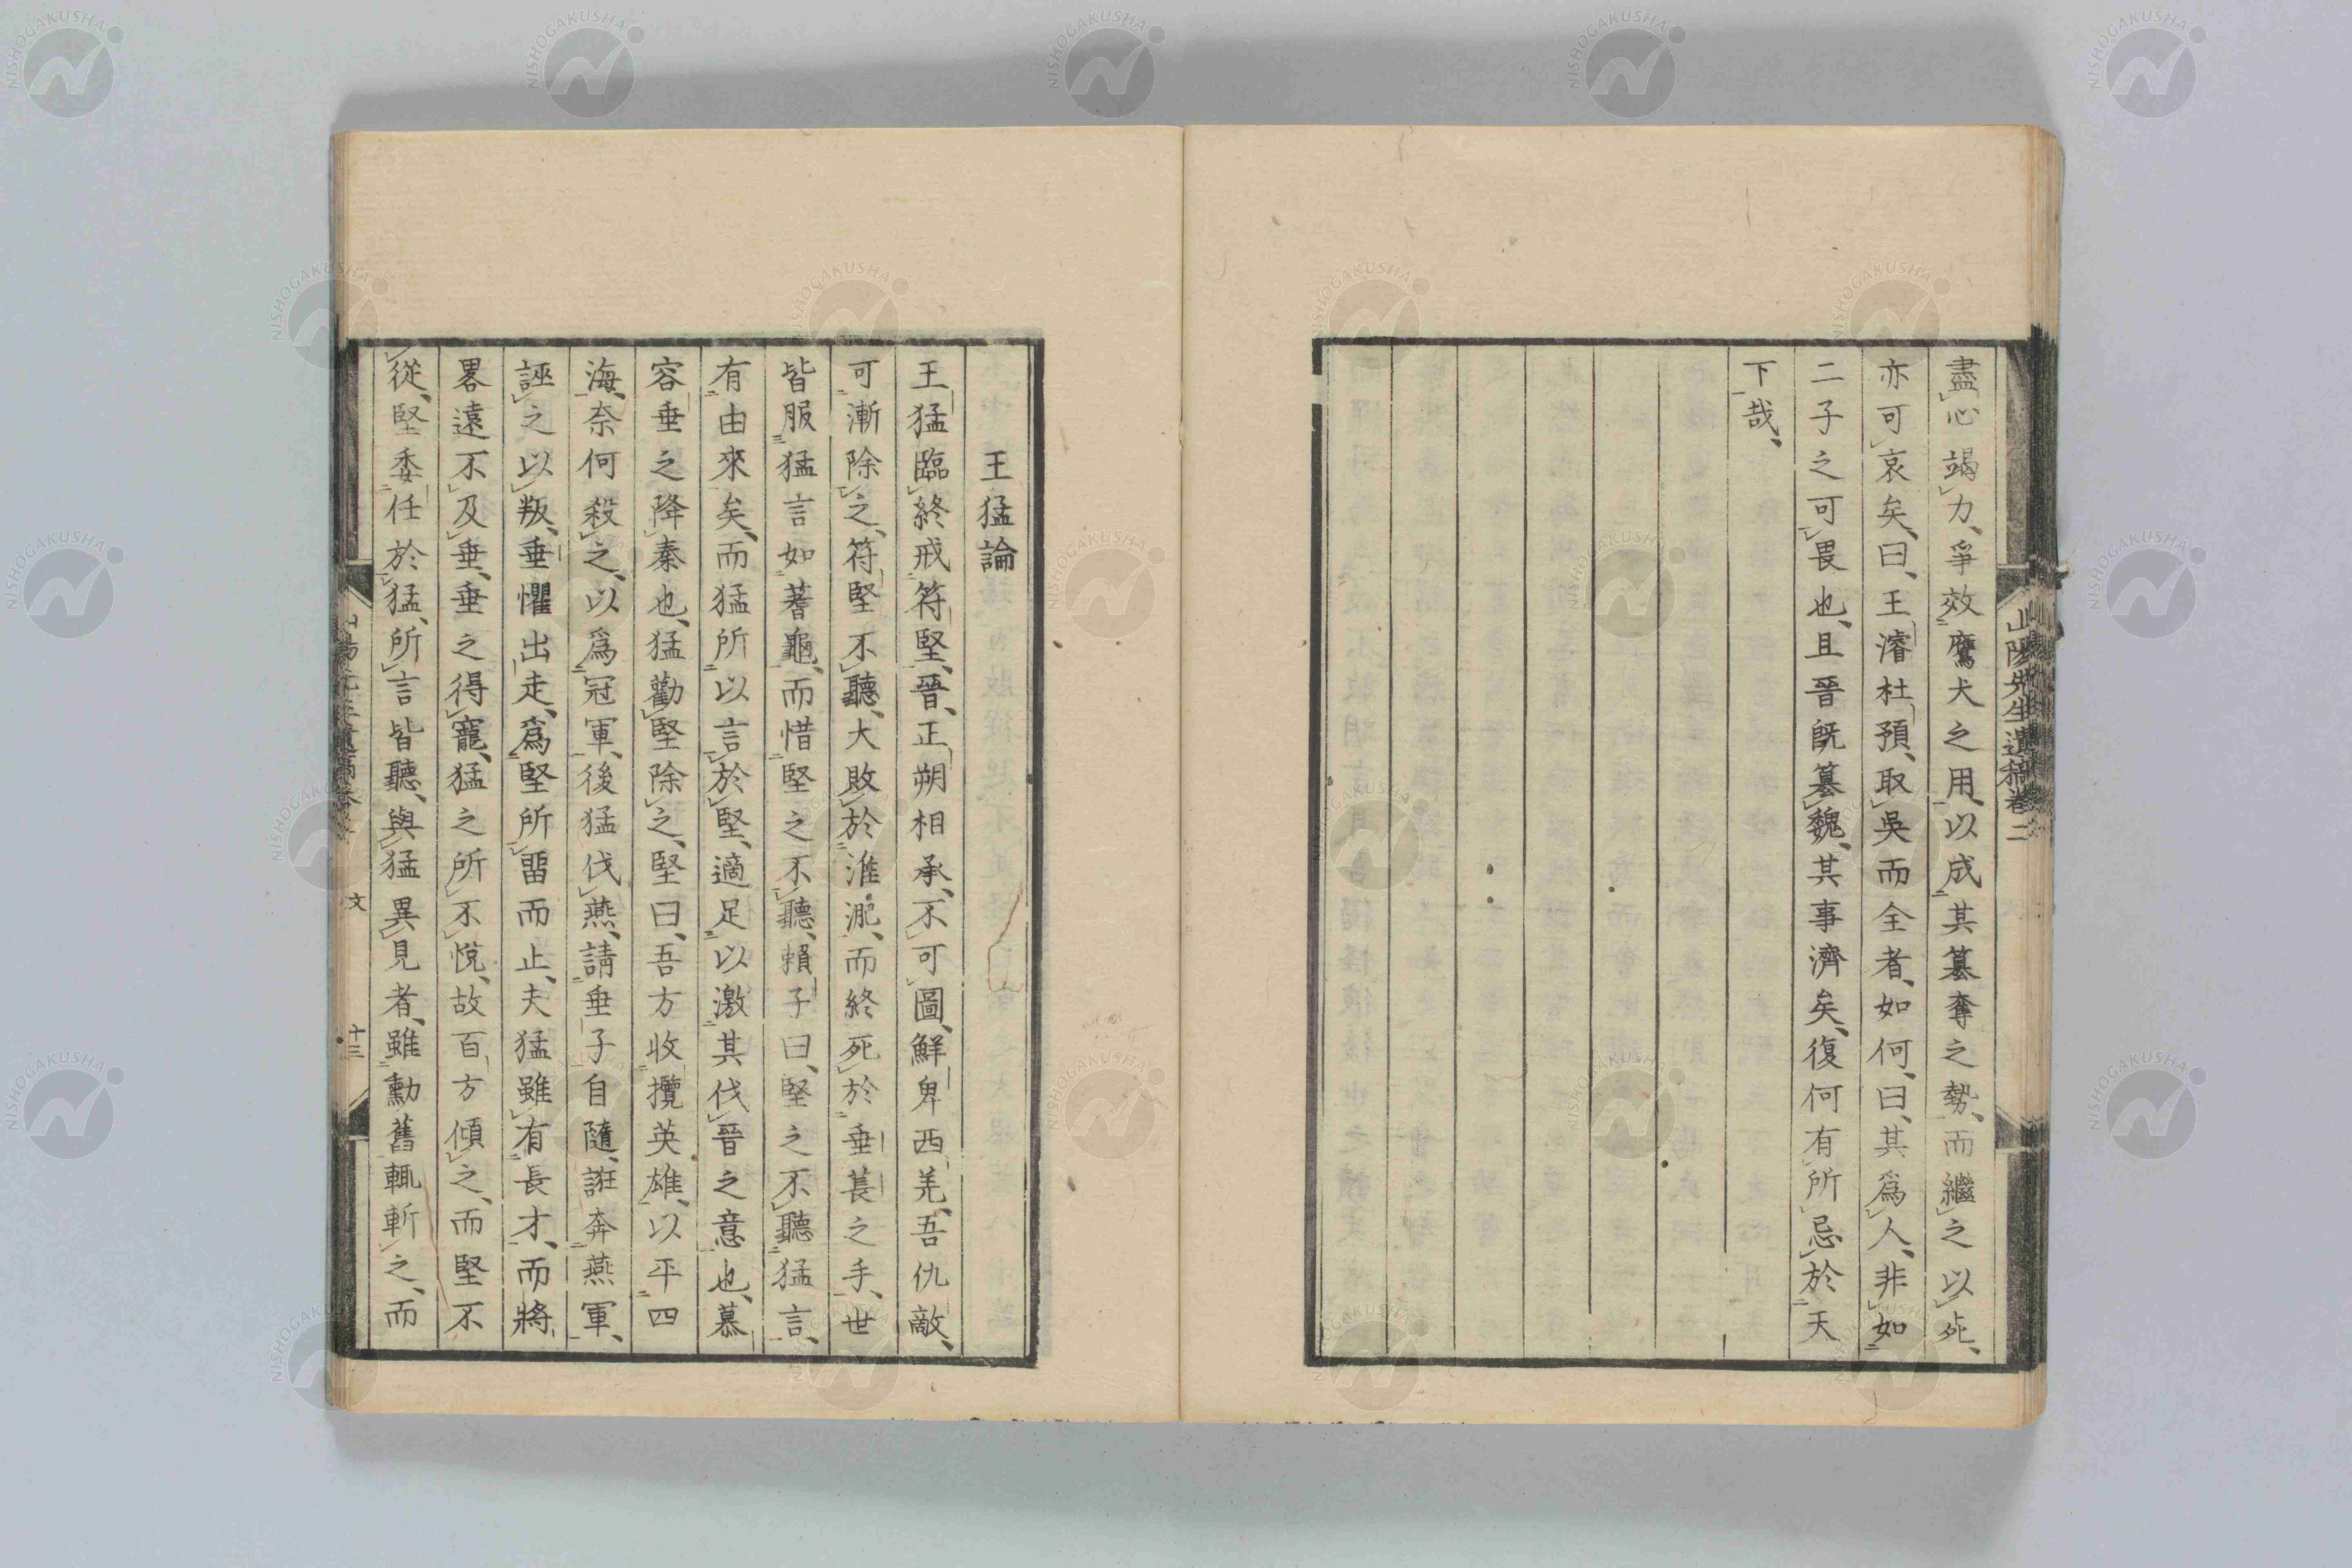 盡心竭力、爭效鷹犬之用、以成其簒奪之勢、而繼之以死、
亦可哀矣、曰、王濬杜預、取吳而全者、如何、曰、其爲人、非如
二子之可畏也、且晉既簒魏、其事濟矣、復何有所忌於天
下哉、
山陽先生遺稿卷二
王猛論
王猛臨終戒符堅、晉、正朔相承、不可圖、鮮卑西羌、吾仇敵、
可漸除之、符堅不聽、大敗於淮淝、而終死於垂萇之手、世
皆服猛言如蓍龜、而惜堅之不聽、賴子曰、堅之不聽猛言、
有由來矣、而猛所以言於堅、適足以激其伐晉之意也、慕
容垂之降秦也、猛勸堅除之、堅曰、吾方收攬英雄、以平四
海、奈何殺之、以爲冠軍、後猛伐燕、請垂子自隨、誑奔燕軍、
誣之以叛、垂懼出走、爲堅所畱而止、夫猛雖有長才、而將
畧遠不及垂、垂之得寵、猛之所不悅、故百方傾之、而堅不
從、堅委任於猛、所言皆聽、與猛異見者、雖勳舊輒斬之、而
文
十三
NISHOGAKUSHA